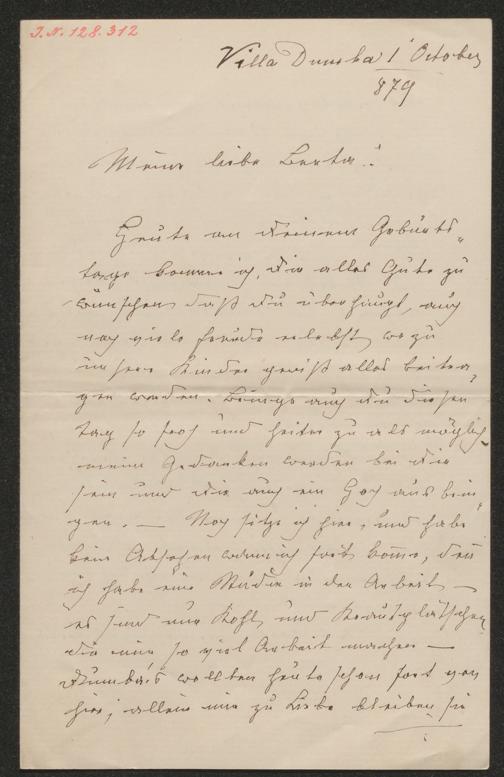 J.N. 128.312
Villa Dumba 1' October
879
Meine liebe Berta!
Heute an deinem Geburts
tage komme ich, dir alles Gute zu
wünschen daß du überhaupt, auch
noch viele Freude erlebst wozu
unsere Kinder gewiß alles beitra
gen werden. Bringe auch du diesen
tag so froh und heiter zu als möglich
meine Gedanken werden bei dir
sein und dir auch ein Hoch aus brin
gen. — Noch sitze ich hier, und habe
kein Absehen wann ich fort komme, den
ich habe eine Studie in der Arbeit —
es sind nur Kohl und Krautplätschen
die mir so viel Arbeit machen —
Dumba's wollten heute schon fort von
hier; allein mir zu Liebe bleiben sie